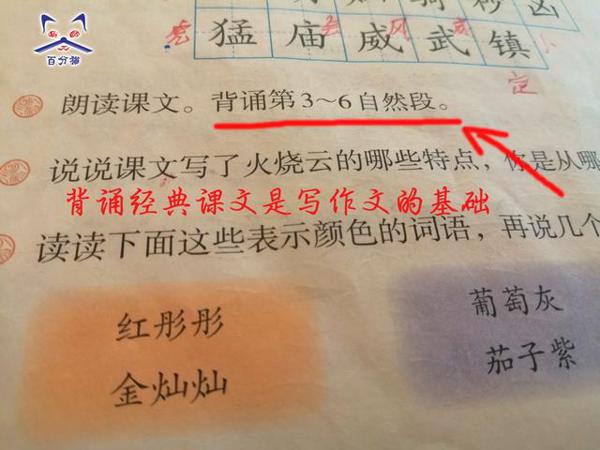 百分猫
猛 庙 威 武 镇
定
朗读课文。背诵第3～6自然段。
说说课文写了火烧云的哪些特点，你是从哪
背诵经典课文是写作文的基础
读读下面这些表示颜色的词语，再说几个
红彤彤
葡萄灰
金灿灿
茄子紫